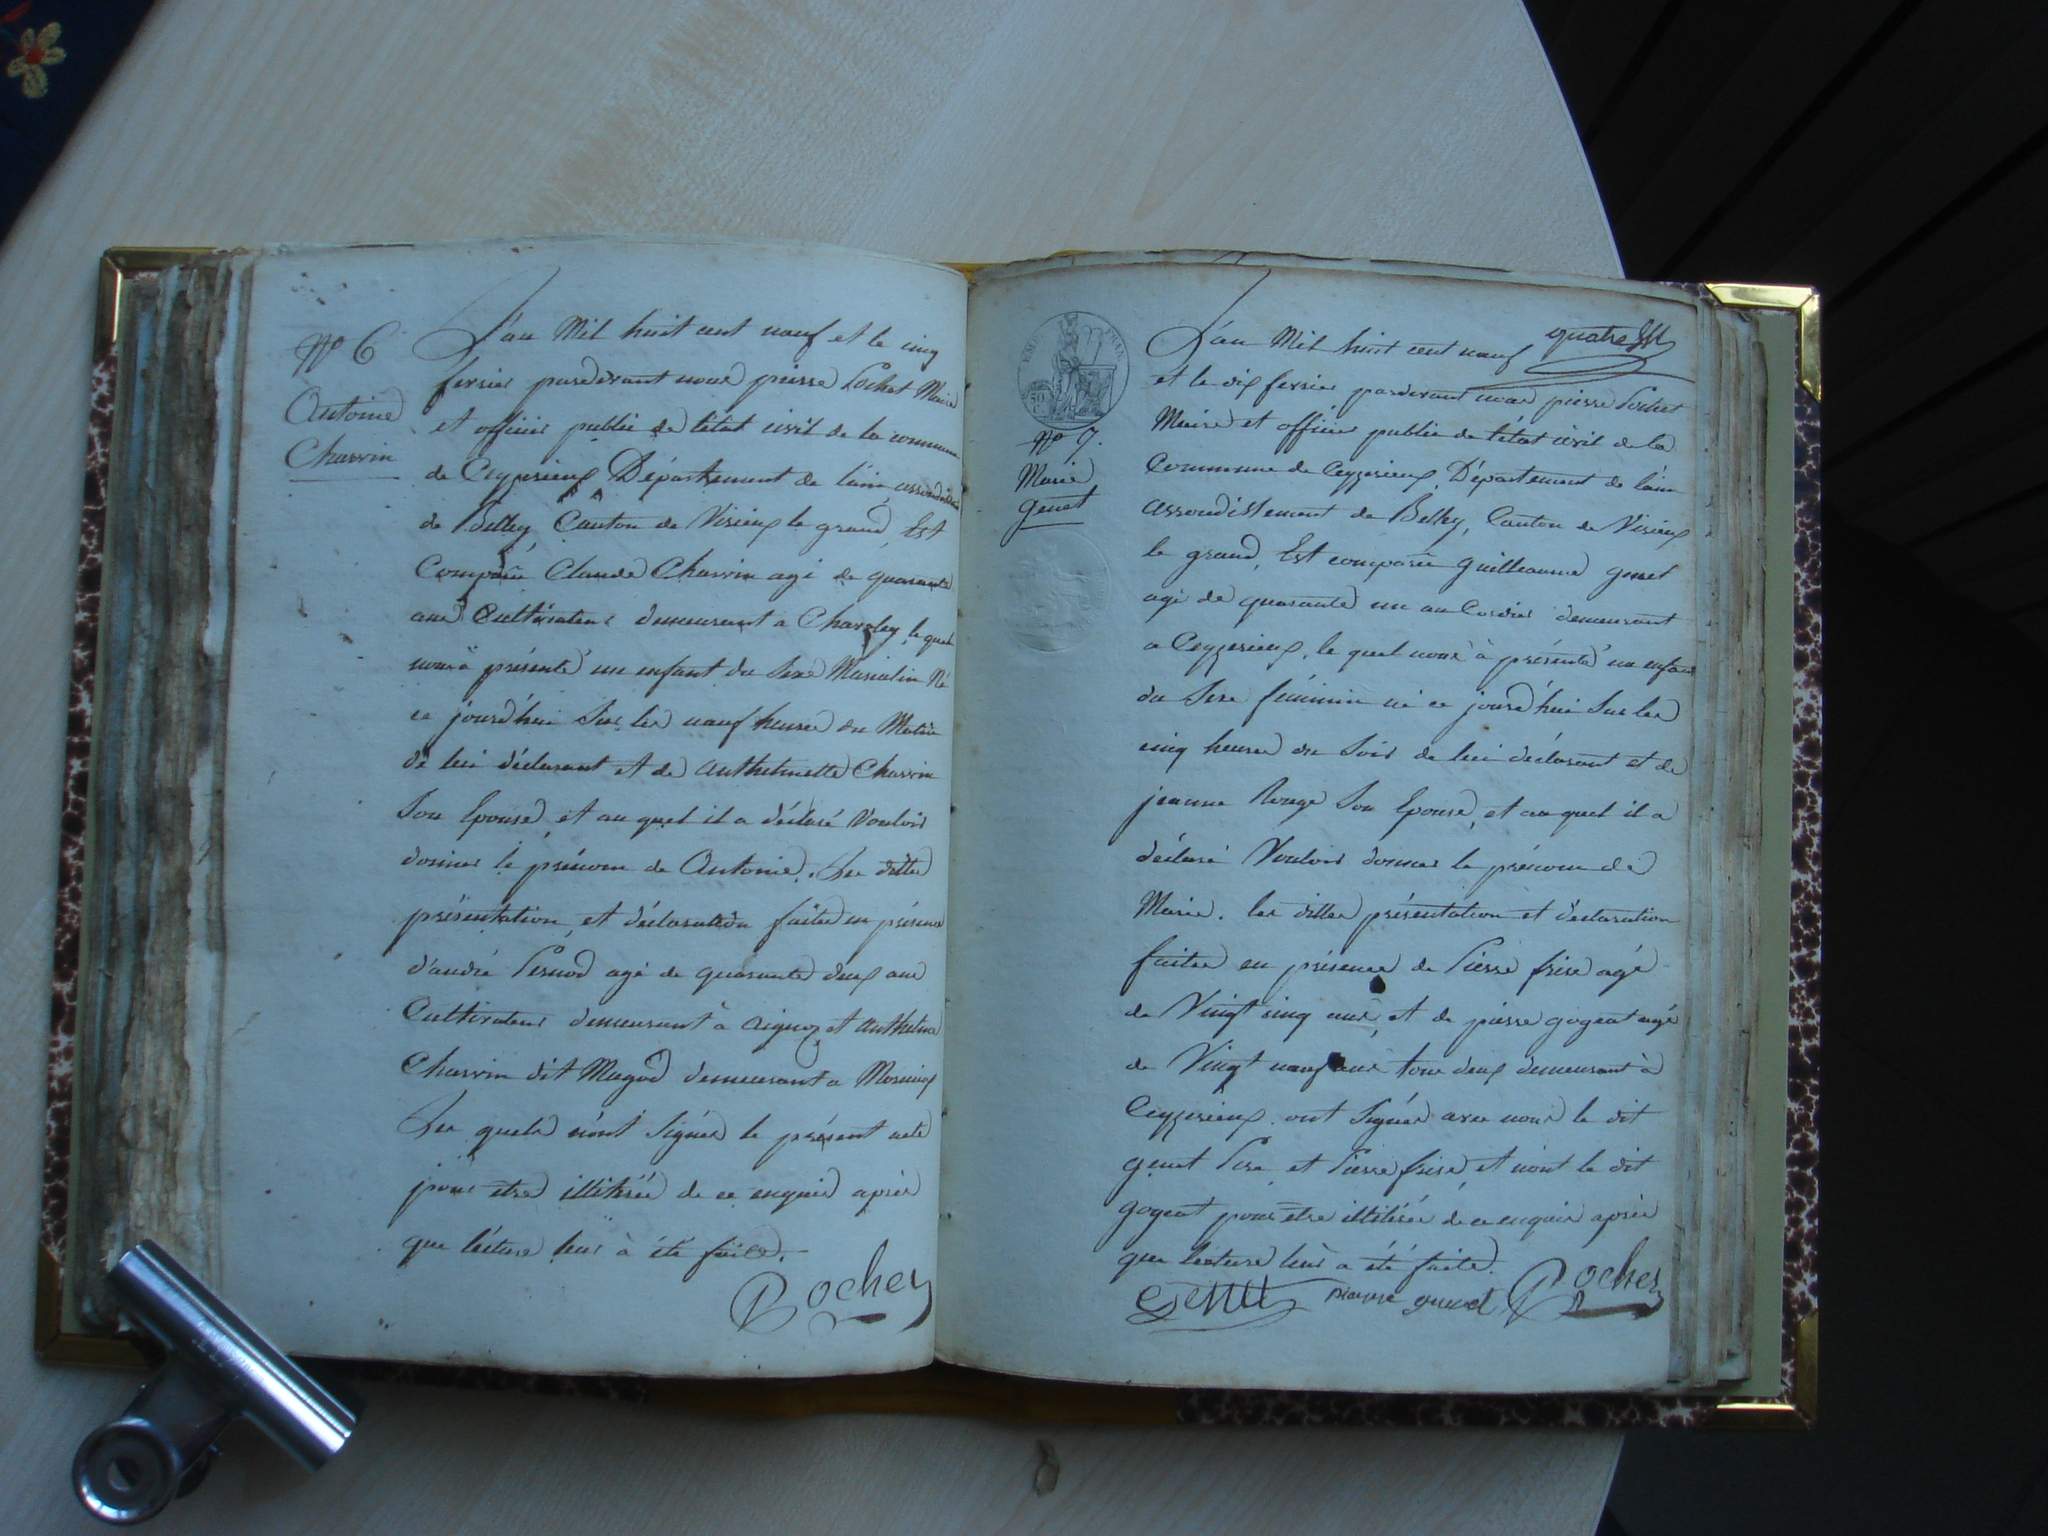 N° 6
Antoine
Charvin
L'an Mil huit cent neuf et le cinq
fevrier pardevant nous pierre Rochet Maire
et officier public de l'état civil de la commune
de Ceyzerieux Département de l'ain, arrondissement
de Belley Canton de Virieux le grand, Est
Comparu Claude Charvin agé de quarante
ans Cultivateur demeurant a Charoley, le quel
nous à présenté un enfant du Sexe Masculin Né
ce jourd'hui Sur les neuf heures du Matin
de lui déclarant et de Anthelmette Charvin
Son Epouse, et au quel il a déclaré Vouloir
donner le prénom de Antoine. Les dittes
présentation, et déclaration faites en présence
d'andré Pernod agé de quarante deux ans
Cultivateur demeurant à aignoz et anthelme
Charvin dit Magod demeurant a
Les quels n'ont Signés le présent acte
pour etre illitérés de ce enquis après
que lécture leur à été faite.
Rochet
quatre
EMP. FRAN.
50 C.
N° 7.
Marie
genet
L'an Mil huit cent neuf
et le dix fevrier pardevant nous pierre Rochet
Maire et officier public de l'état civil de la
Commune de Ceyzerieux, Département de l'ain
arrondissement de Belley, Canton de Virieux
le grand, Est comparu guilleaume genet
agé de quarante un an Cordier demeurant
a Ceyzerieux, le quel nous à présenté un enfant
du Sexe féminin né ce jourd'hui Sur les
cinq heures du Soir de lui déclarant et de
jeanne Rouge Son Epouse, et au quel il a
déclaré Vouloir donner le prénom de
Marie. les dittes présentation et déclaration
faites en présence de Pierre frise agé
de Vingt cinq ans, et de pierre gogeat agé
de Vingt neuf ans tous deux demeurant à
Ceyzerieux. ont Signés avec nous le dit
genet Pere, et Pierre frise, et n'ont le dit
gogeat pour etre illitérés de ce enquis après
que lecture leur a été faite.
Genet Rochet